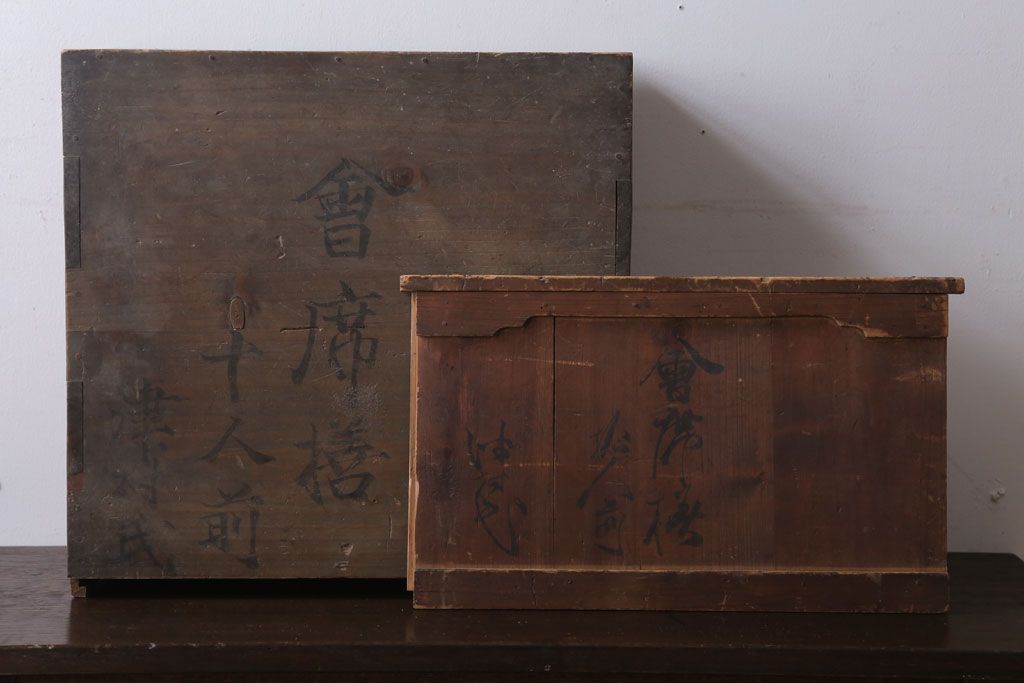 會席膳
十人前
津村氏
會席膳
拾人前